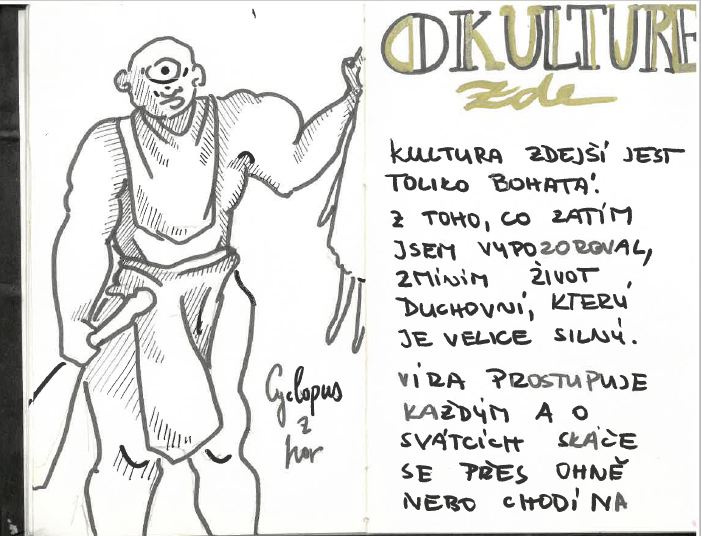 Cyclopus
z
hor
O KULTUŘE
zde
KULTURA ZDEJŠÍ JEST
TOLIKO BOHATÁ!
Z TOHO, CO ZATÍM
JSEM VYPOZOROVAL,
ZMÍNÍM ŽIVOT
DUCHOVNÍ, KTERÝ
JE VELICE SILNÝ.
VÍRA PROSTUPUJE
KAŽDÝM A O
SVÁTCÍCH SKÁČE
SE PŘES OHNĚ
NEBO CHODÍ NA